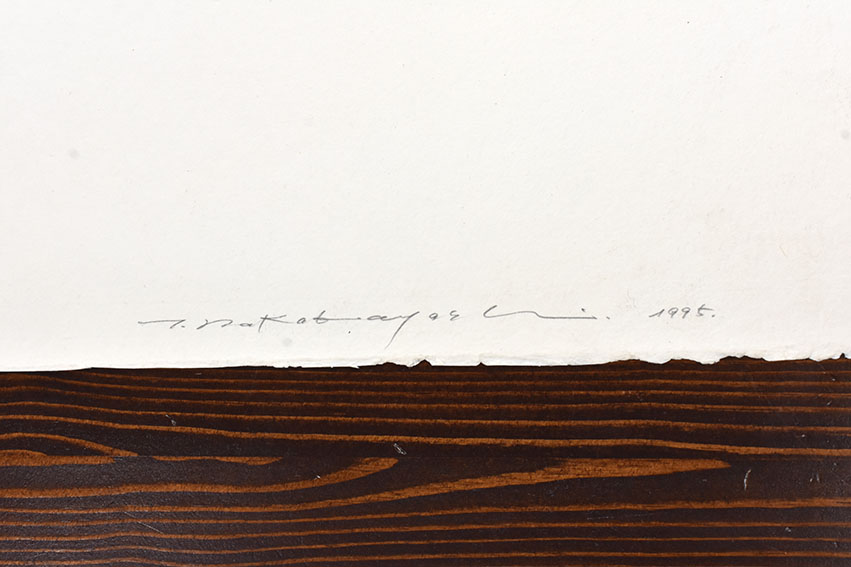 T. Nakabayashi. 1995.